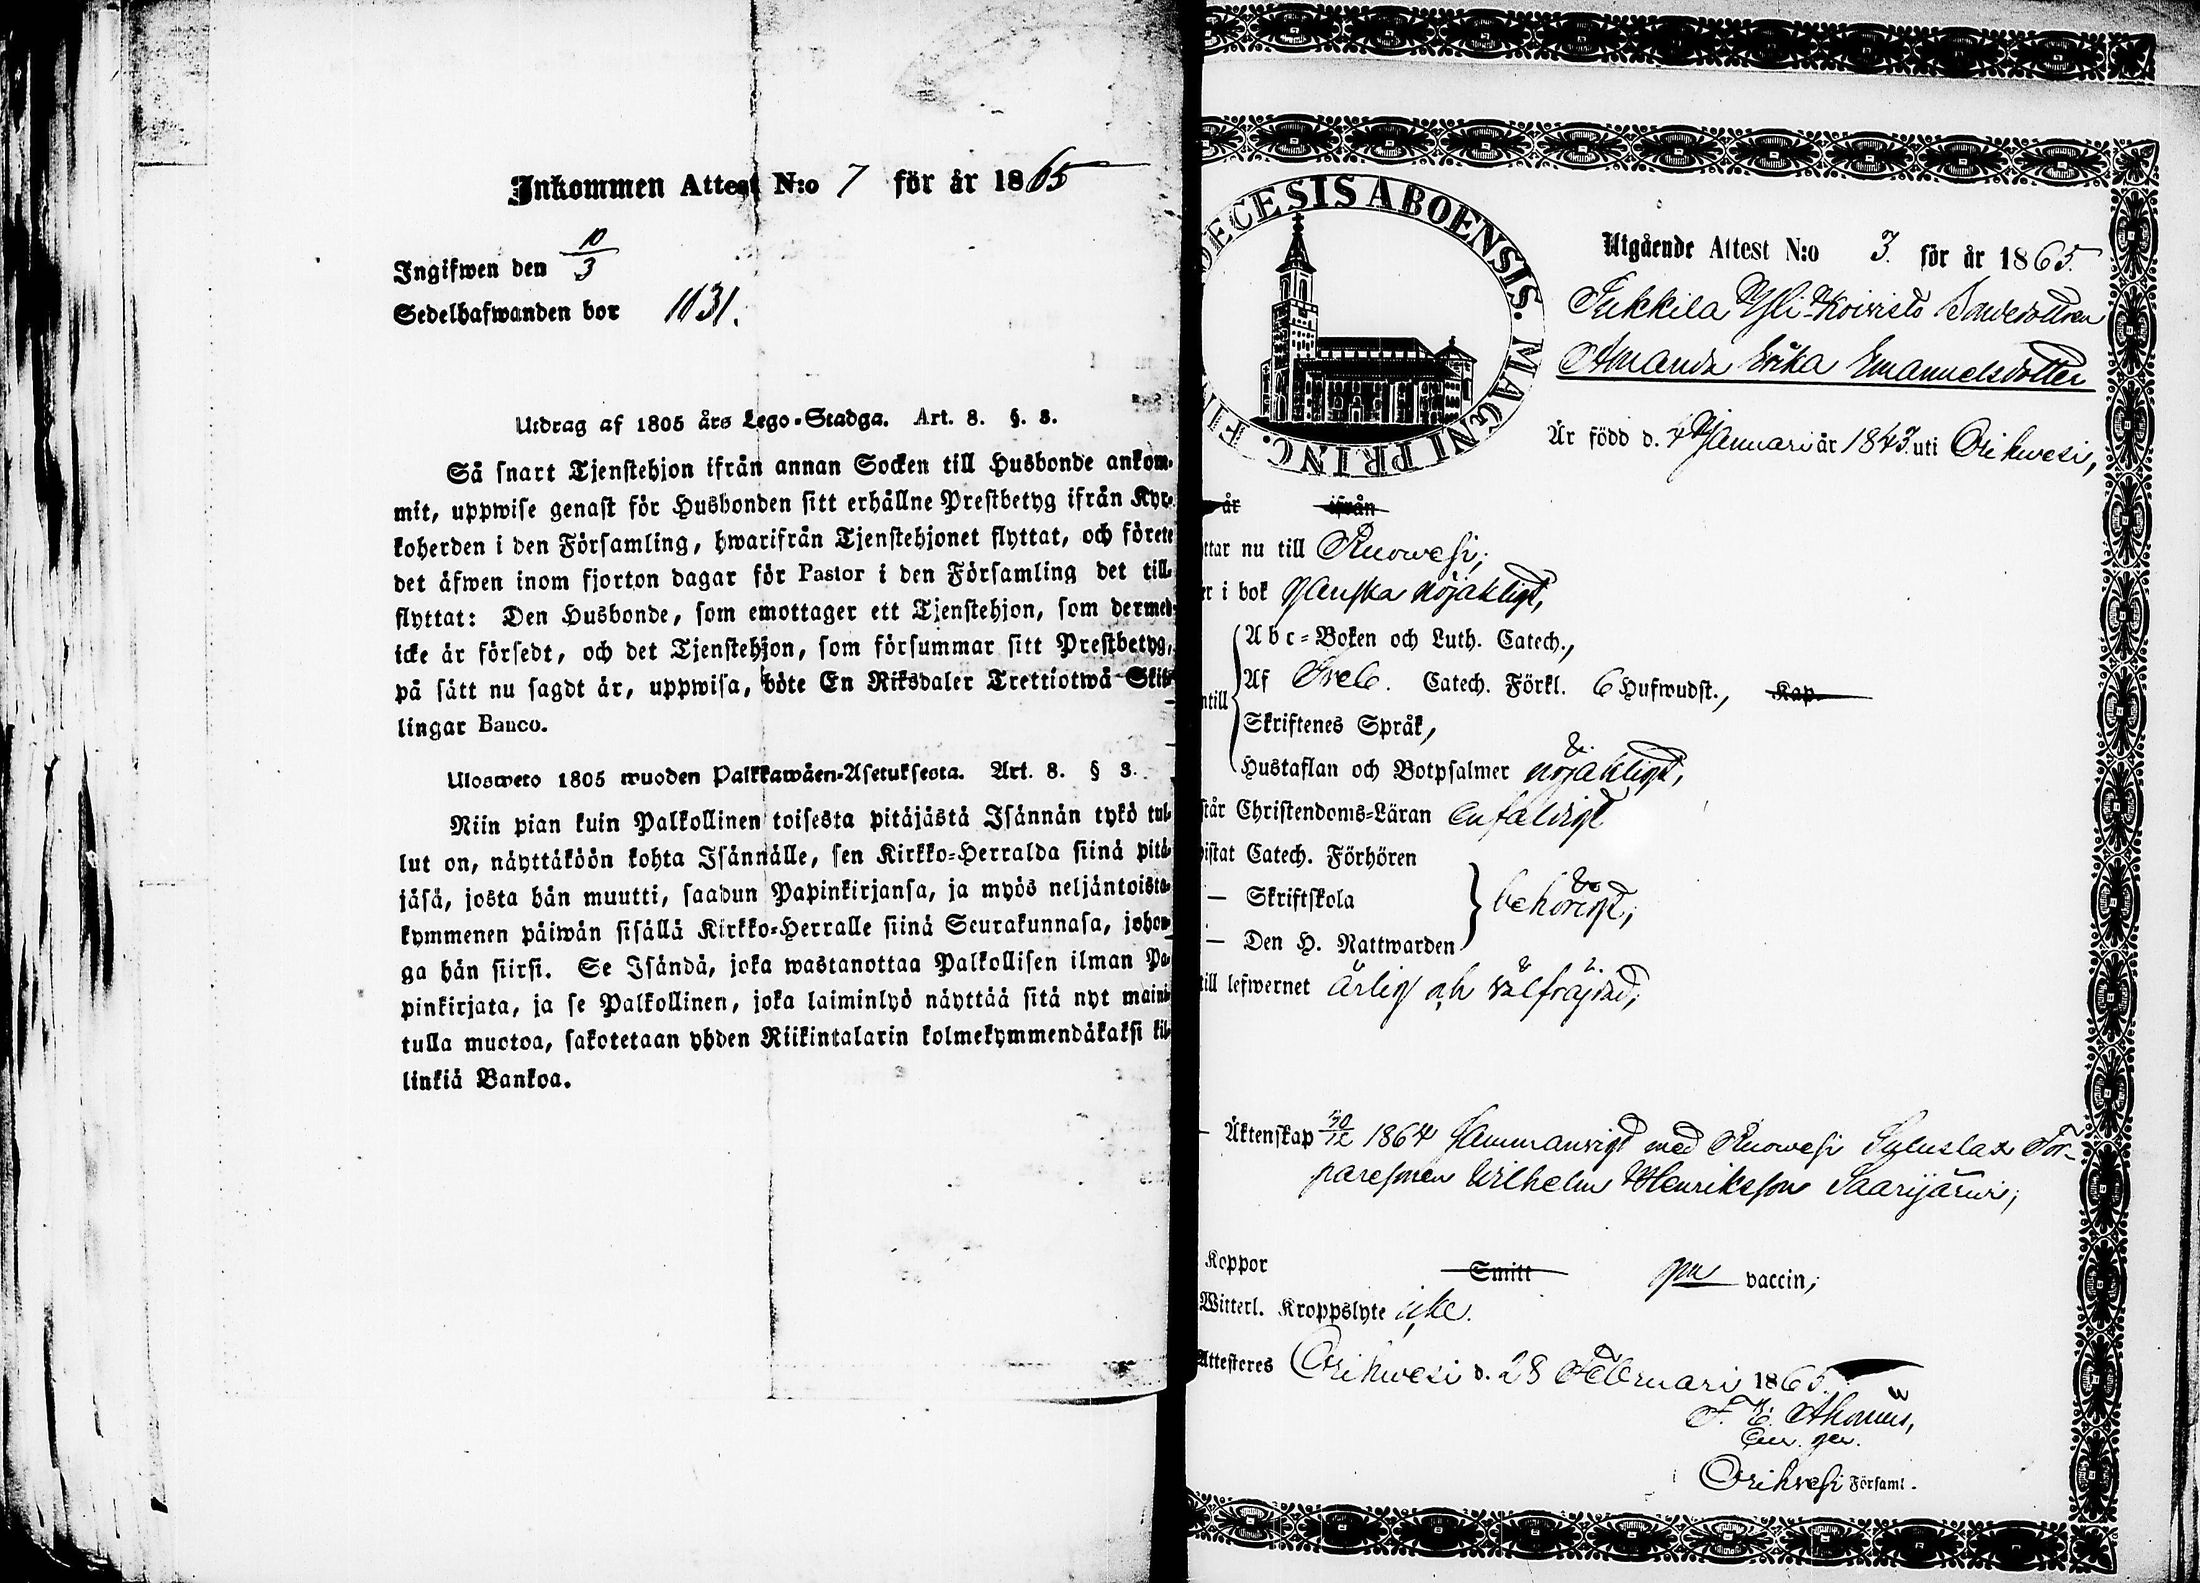 Inkommen Attest N:o 7 för år 1865
Ingifwen den 10/3
Sedelhafwanden bor 1131.
Utdrag af 1805 års Lego-Stadga. Art. 8. §. 3.
Så snart Tjenstehjon ifrån annan Socken till Husbonde ankom-
mit, uppwise genast för Husbonden sitt erhållne Prestbetyg ifrån Kyr-
koherden i den Församling, hwarifrån Tjenstehjonet flyttat, och förete
det äfwen inom fjorton dagar för Pastor i den Församling det till-
flyttat: Den Husbonde, som emottager ett Tjenstehjon, som dermed
icke är försedt, och det Tjenstehjon, som försummar sitt Prestbetyg,
på sätt nu sagdt är, uppwisa, böte En Riksdaler Trettiotwå Skil-
lingar Banco.
Ulosweto 1805 wuoden Palkkawäen-Asetuksesta. Art. 8. § 3.
Niin pian kuin Palkollinen toisesta pitäjästä Isännän tykö tul-
lut on, näyttäköön kohta Isännälle, sen Kirkko-Herralda siinä pitä-
jäsä, josta hän muutti, saadun Papinkirjansa, ja myös neljäntoista-
kymmenen päiwän sisällä Kirkko-Herralle siinä Seurakunnasa, johon-
ga hän siirsi. Se Isändä, joka wastanottaa Palkollisen ilman Pa-
pinkirjata, ja se Palkollinen, joka laiminlyö näyttää sitä nyt maini-
tulla muotoa, sakotetaan yhden Riikintalarin kolmekymmendäkaksi kil-
linkiä Bankoa.
DECESIS ABOENSIS. MAGNI PRINC. FI
Utgående Attest N:o 3. för år 1865.
Yli Koivisto
Amanda Erika Emanuelsdotter
Är född d. 4 Januari år 1843. uti Orihwesi,
år ifrån
ttar nu till Ruowesi;
er i bok ganska nöjaktigt,
Abc-Boken och Luth. Catech.,
Af Sveb. Catech. Förkl. 6 Hufwudst., Kap.
ntill
Skriftenes Språk,
Hustaflan och Botpsalmer nöjaktigt,
står Christendoms-Läran enfaldigt
istat Catech. Förhören
— Skriftskola behörigt,
— Den H. Nattwarden
till lefwernet ärlig och välfräjdad;
— Äktenskap 1864 sammanvigd med Ruowesi Tor-
paresonen Wilhelm Henriksson Saarijärvi;
Koppor Smitt vaccin;
Witterl. Kroppslyte icke.
Attesteres Orihwesi d. 28 Februari 1865.
F. E.
Orihvesi Församl.